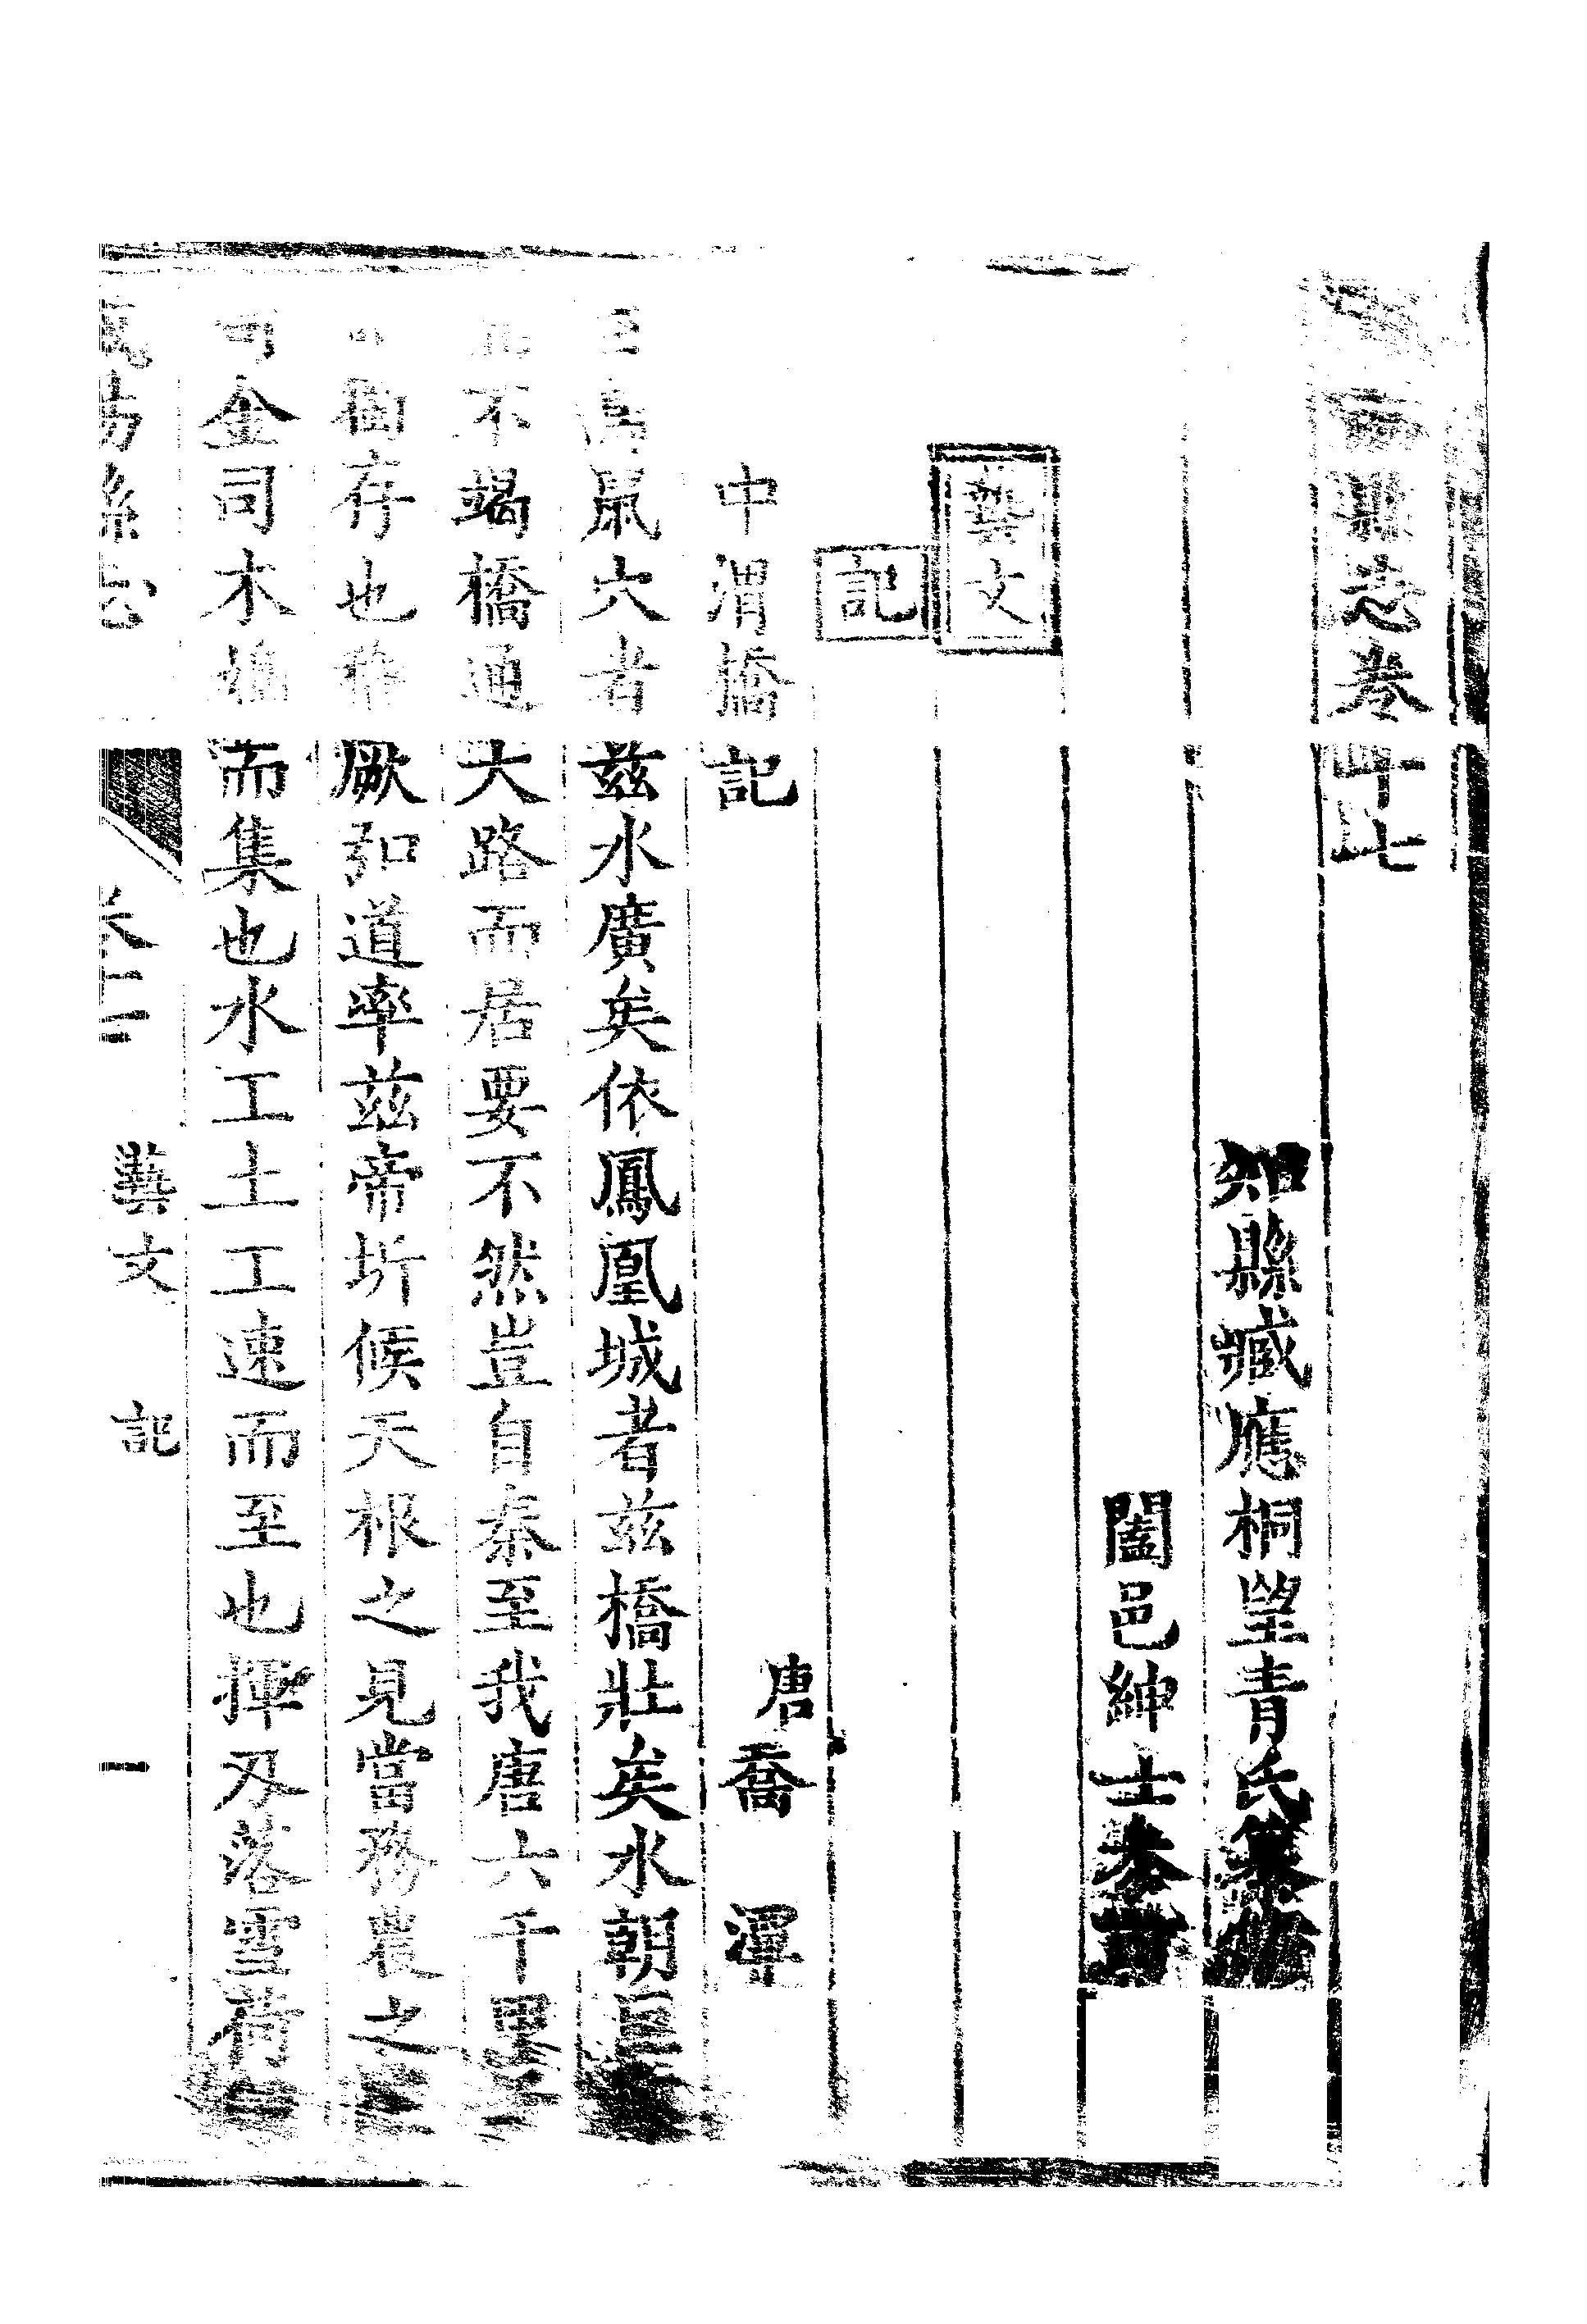 縣志卷十七
知縣臧應桐望青氏纂修
闔邑紳士參訂
藝文
記
中渭橋記
唐喬潭
鼠穴者茲水廣矣依鳳凰城者茲橋壯矣水朝
不竭橋通大路而居要不然豈自秦至我唐六千
猶存也厥弘道率茲帝圻候天根之見當務農之
司金司木鳩而集也水工土工速而至也揮刃落雪荷
陽縣志
藝文
記
一